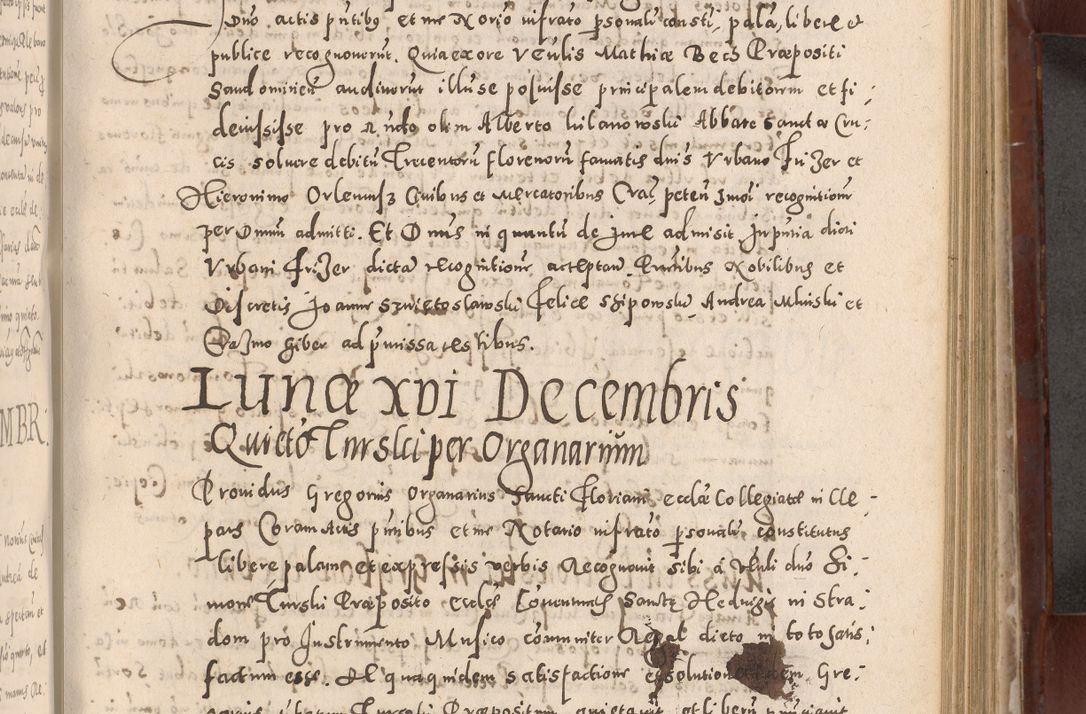 Dno actis pntibq et me Norio infrato psonalr consti, pala, libere et
publice recognoverut. Quia ex ore Venlis Mathiæ Bech Præpositi
Sandominien audiverut illu se posuisse principalem debitorem et fi-
deiussisse pro olim Alberto Abbate Sanctæ Cru-
cis solvere debitu Trecentoru florenoru famatis dnis Urbano Frizer et
Hieronimo Civibus et Mercatoribus Crac peten recognitione
per Dnum admitti. Et Dnus in quantu de Jure admisit In pntia dicti
Urbani Frizer dicta recognitione acceptan. Pntibus Nobilibus et
Discretis Joanne Szwiętoslawski Felice Andrea et
Giber ad pmissa testibus.
Lunæ xvi Decembris
Quietō Turski per Organarium
Providus Gregorius Organarius Sancti Floriani ecclæ Collegiatæ in Cle-
par Coram Actis pntibus et me Notario infrato psonalr constitutus
libere palam et expressis verbis Recognovit sibi á Vnli dno Si-
mone Turski Præposito Eccles Conventual Sanctę Hedvigis in Stra-
dom pro Instrumento Musico comuniter dicto in toto satis-
factum esse. A qua quidem satisfactione Gre-
Turski Præpositum quietavit et liberu